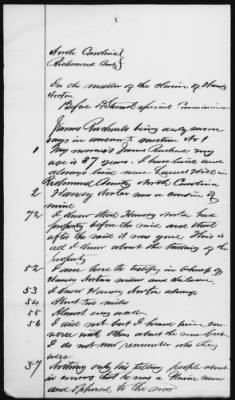 North Carolina }
Richmond County }
In the matter of the claim of Harvey
Norton
Before Special Commissioner
James being duly sworn
says in answer to question No 1
1 My name is James my
age is 57 years. I have lived and
always lived near Laurel Hill in
Richmond County North Carolina
2 Harvey Norton was a cousin of
mine
72 I know that Harvey Norton had
property before the raid and that
after the raid it was gone. This is
all I know about the taking of the
property
52 I am here to testify in behalf of
Harvey Nortons widow and children.
53 I knew Harvey Norton always
54 About two miles
55 Almost every week
56 I did not but I heard him con
verse with others about the war but
I do not remember who they
were
57 Nothing only his telling people about
in that he was a Union man
and opposed to the war